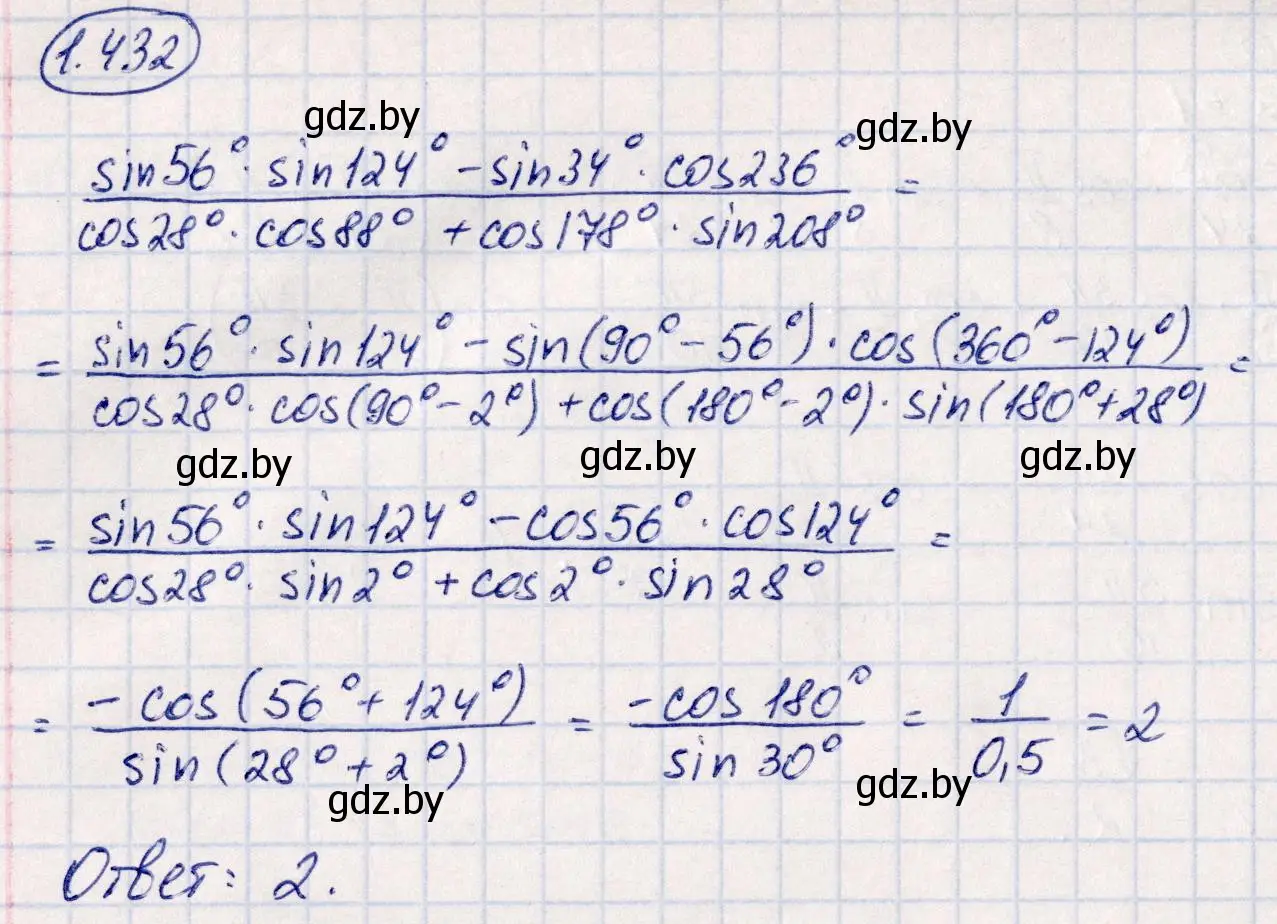 1.432
gdz.by gdz.by
sin56°· sin124° - sin34°· cos236°
cos28°· cos88° + cos178°· sin208° =
= sin56°· sin124° - sin(90° - 56°)· cos(360° - 124°) =
cos28°· cos(90° - 2°) + cos(180° - 2°)· sin(180° + 28°)
gdz.by gdz.by gdz.by
= sin56°· sin124° - cos56°· cos124° =
cos28°· sin2° + cos2°· sin28°
= -cos(56° + 124°) = -cos180° = 1 = 2
sin(28° + 2°) sin30° 0,5
gdz.by gdz.by
Ответ: 2.